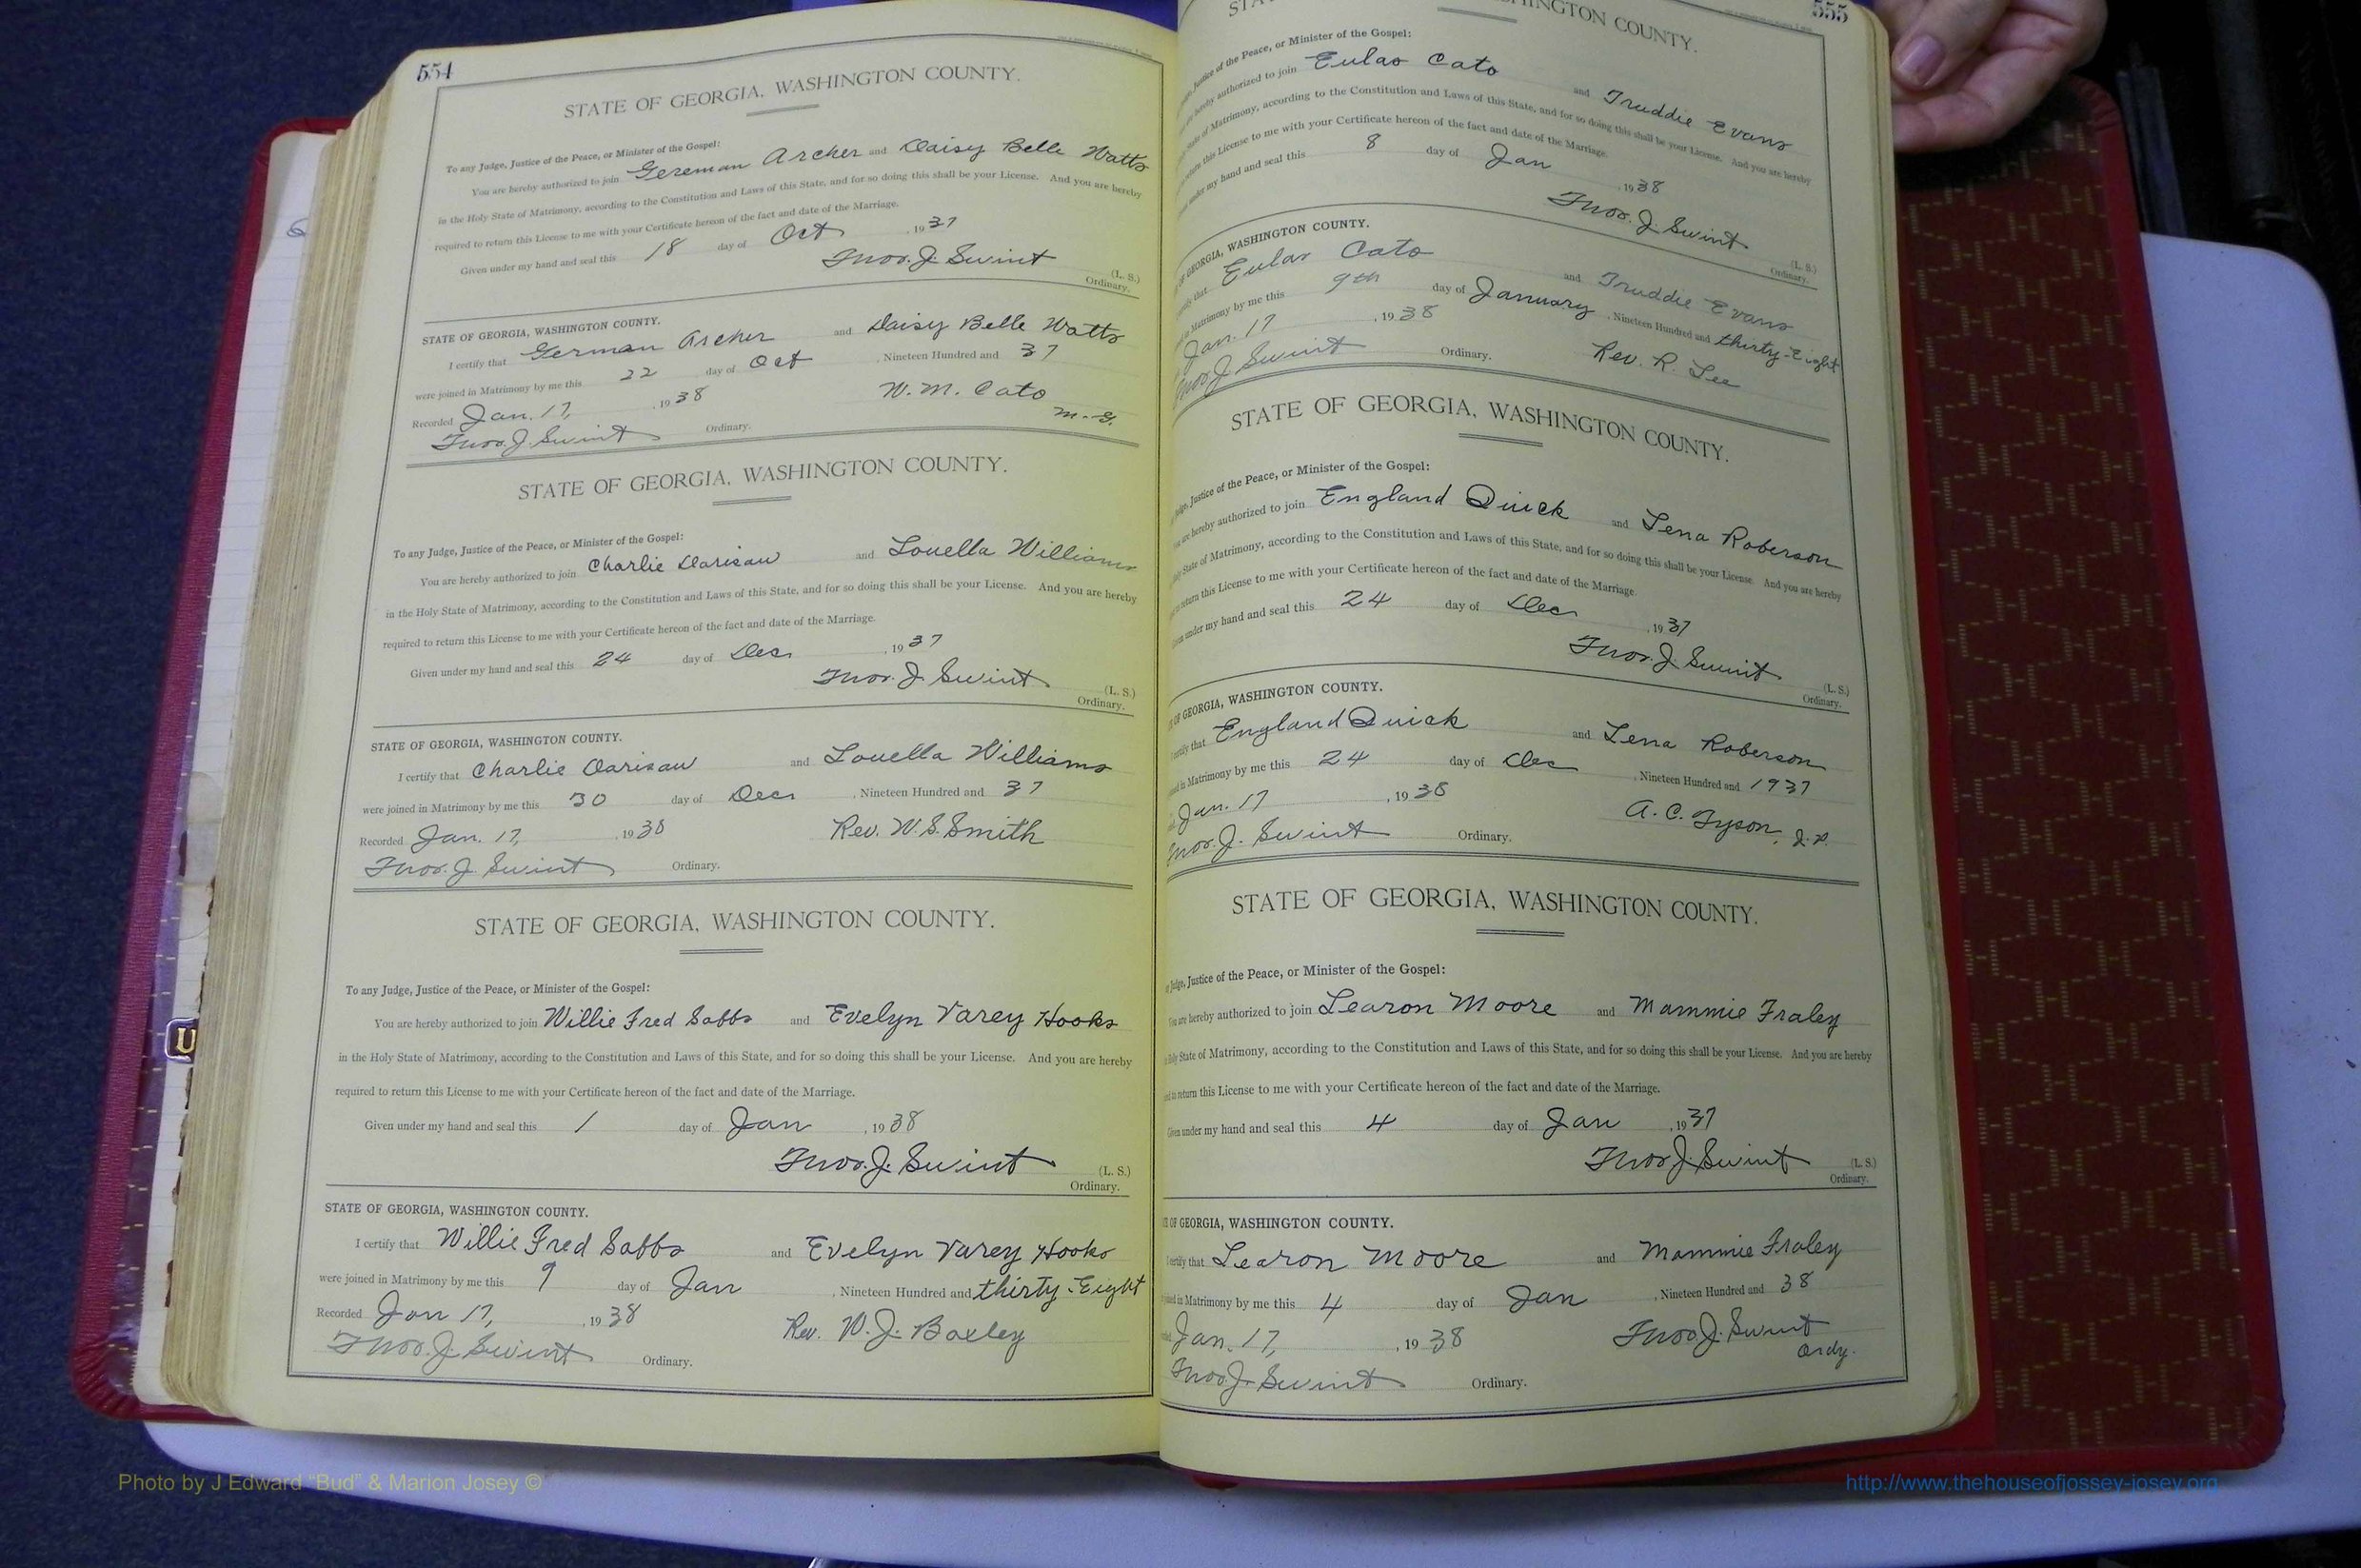 554
STATE OF GEORGIA, WASHINGTON COUNTY.
To any Judge, Justice of the Peace, or Minister of the Gospel:
You are hereby authorized to join Gereman Archer and Daisy Belle Watts
in the Holy State of Matrimony, according to the Constitution and Laws of this State, and for so doing this shall be your License. And you are hereby
required to return this License to me with your Certificate hereon of the fact and date of the Marriage.
Given under my hand and seal this 18 day of Oct, 1937
Thos. J. Swint (L. S.)
Ordinary.
STATE OF GEORGIA, WASHINGTON COUNTY.
I certify that German Archer and Daisy Belle Watts
were joined in Matrimony by me this 22 day of Oct, Nineteen Hundred and 37
Recorded Jan. 17, 1938 W. M. Cato
M. G.
Thos. J. Swint Ordinary.
STATE OF GEORGIA, WASHINGTON COUNTY.
To any Judge, Justice of the Peace, or Minister of the Gospel:
You are hereby authorized to join Charlie Darisaw and Louella Williams
in the Holy State of Matrimony, according to the Constitution and Laws of this State, and for so doing this shall be your License. And you are hereby
required to return this License to me with your Certificate hereon of the fact and date of the Marriage.
Given under my hand and seal this 24 day of Dec, 1937
Thos. J. Swint (L. S.)
Ordinary.
STATE OF GEORGIA, WASHINGTON COUNTY.
I certify that Charlie Darisaw and Louella Williams
were joined in Matrimony by me this 30 day of Dec, Nineteen Hundred and 37
Recorded Jan. 17, 1938 Rev. W. S. Smith
Thos. J. Swint Ordinary.
STATE OF GEORGIA, WASHINGTON COUNTY.
To any Judge, Justice of the Peace, or Minister of the Gospel:
You are hereby authorized to join Willie Fred Sabbs and Evelyn Varey Hooks
in the Holy State of Matrimony, according to the Constitution and Laws of this State, and for so doing this shall be your License. And you are hereby
required to return this License to me with your Certificate hereon of the fact and date of the Marriage.
Given under my hand and seal this 1 day of Jan, 1938
Thos. J. Swint (L. S.)
Ordinary.
STATE OF GEORGIA, WASHINGTON COUNTY.
I certify that Willie Fred Sabbs and Evelyn Varey Hooks
were joined in Matrimony by me this 9 day of Jan, Nineteen Hundred and thirty-Eight
Recorded Jan 17, 1938 Rev. W. J. Boxley
Thos. J. Swint Ordinary.
555
COUNTY.
Justice of the Peace, or Minister of the Gospel:
hereby authorized to join Eular Cato and Truddie Evans
State of Matrimony, according to the Constitution and Laws of this State, and for so doing this shall be your License. And you are hereby
return this License to me with your Certificate hereon of the fact and date of the Marriage.
under my hand and seal this 8 day of Jan, 1938
Thos. J. Swint (L. S.)
Ordinary.
OF GEORGIA, WASHINGTON COUNTY.
that Eular Cato and Truddie Evans
in Matrimony by me this 9th day of January, Nineteen Hundred and thirty-Eight
Jan. 17, 1938 Rev. R. Lee
Thos. J. Swint Ordinary.
STATE OF GEORGIA, WASHINGTON COUNTY.
Judge, Justice of the Peace, or Minister of the Gospel:
You are hereby authorized to join England Quick and Lena Roberson
State of Matrimony, according to the Constitution and Laws of this State, and for so doing this shall be your License. And you are hereby
return this License to me with your Certificate hereon of the fact and date of the Marriage.
under my hand and seal this 24 day of Dec, 1937
Thos. J. Swint (L. S.)
Ordinary.
OF GEORGIA, WASHINGTON COUNTY.
certify that England Quick and Lena Roberson
in Matrimony by me this 24 day of Dec, Nineteen Hundred and 1937
Jan. 17, 1938 A. C. Tyson, J. P.
Thos. J. Swint Ordinary.
STATE OF GEORGIA, WASHINGTON COUNTY.
Judge, Justice of the Peace, or Minister of the Gospel:
You are hereby authorized to join Learon Moore and Mammie Fraley
Holy State of Matrimony, according to the Constitution and Laws of this State, and for so doing this shall be your License. And you are hereby
to return this License to me with your Certificate hereon of the fact and date of the Marriage.
Given under my hand and seal this 4 day of Jan, 1937
Thos J. Swint (L. S.)
Ordinary.
OF GEORGIA, WASHINGTON COUNTY.
certify that Learon Moore and Mammie Fraley
joined in Matrimony by me this 4 day of Jan, Nineteen Hundred and 38
Jan. 17, 1938 Thos J. Swint
Ordy.
Thos J. Swint Ordinary.
Photo by J Edward "Bud" & Marion Josey ©
http://www.thehouseofjossey-josey.org